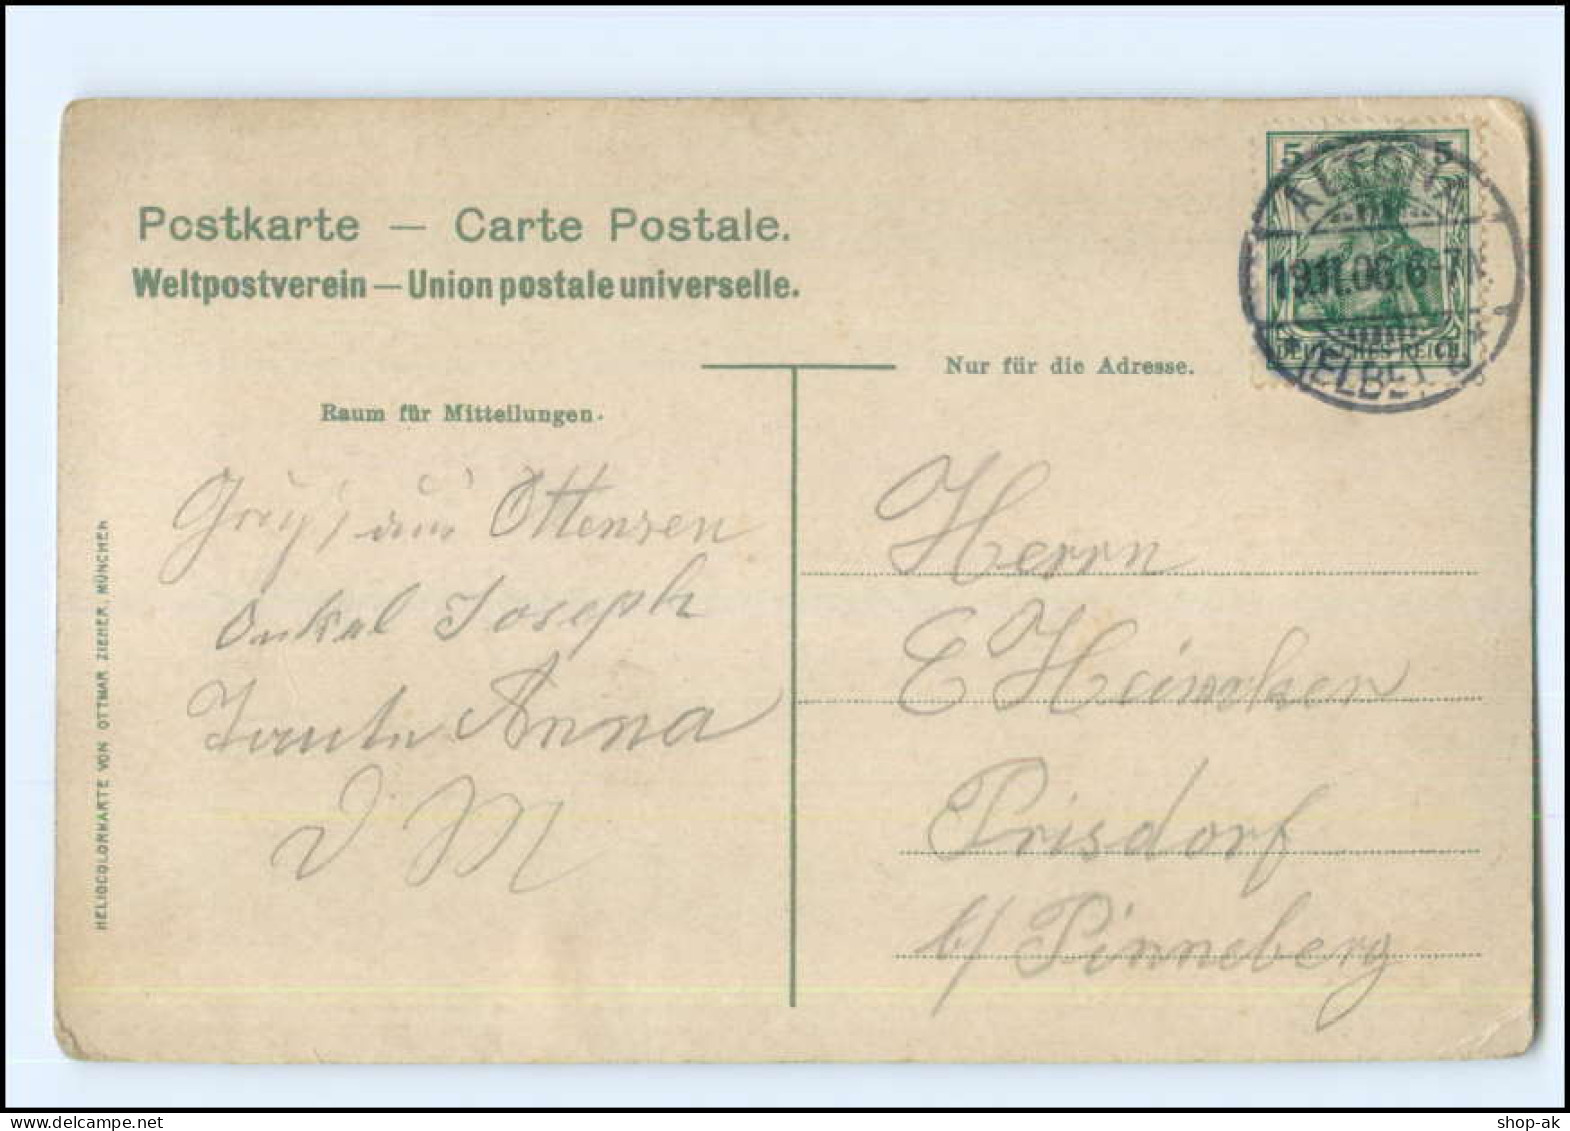 Postkarte — Carte Postale.
Weltpostverein — Union postale universelle.
Nur für die Adresse.
Raum für Mitteilungen.
5 5
ALTONA
19.11.06.6-7N
* (ELBE) *
DEUTSCHES REICH
Gruß aus Ottensen
Onkel Joseph
Tante Anna
Herrn
E Heinrken
Prisdorf
b/ Pinneberg
HELIOCOLORKARTE VON OTTMAR ZIEHER, MÜNCHEN
shop-ak